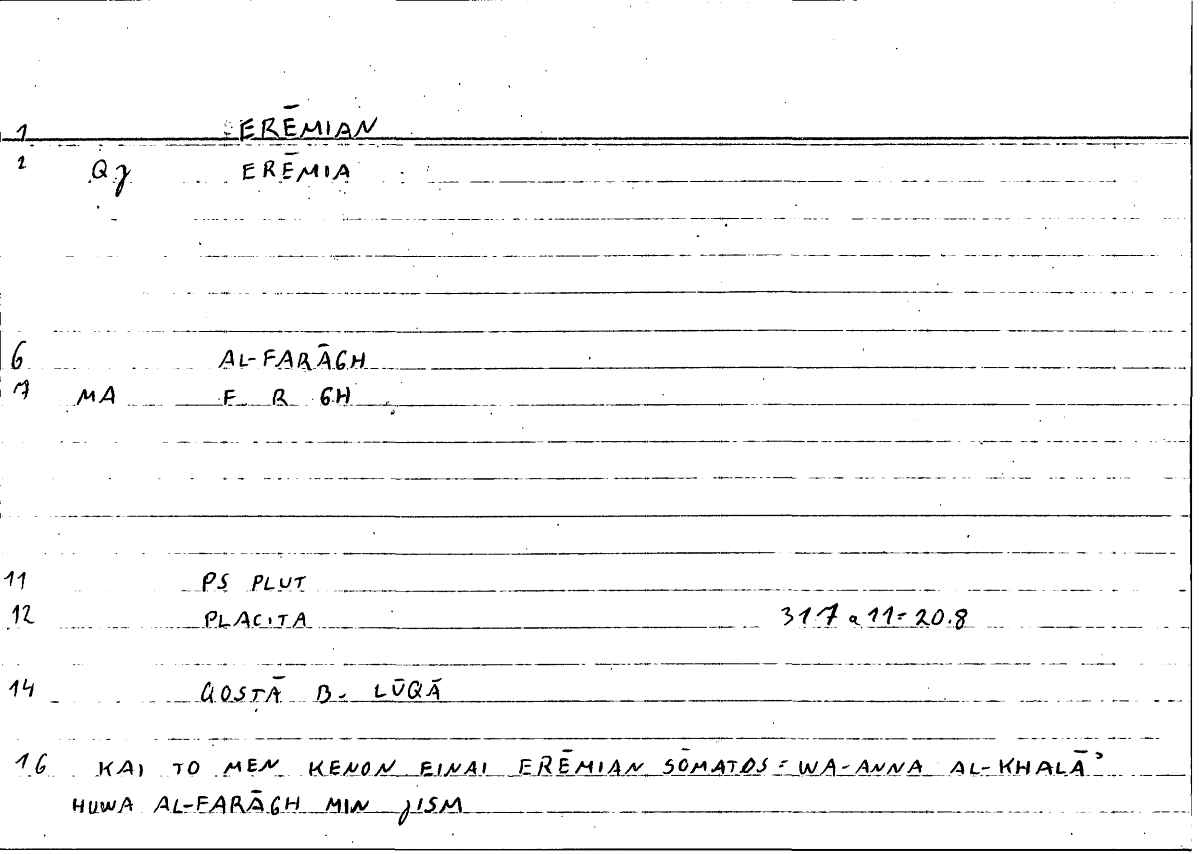 1 ERĒMIAN
2 Qj ERĒMIA
6 AL-FARĀGH
7 MA F R GH
11 PS PLUT
12 PLACITA 317 a 11=20.8
14 QOSTĀ B. LŪQĀ
16 KAI TO MEN KENON EINAI ERĒMIAN SŌMATOS = WA-ANNA AL-KHALĀʾ
HUWA AL-FARĀGH MIN JISM